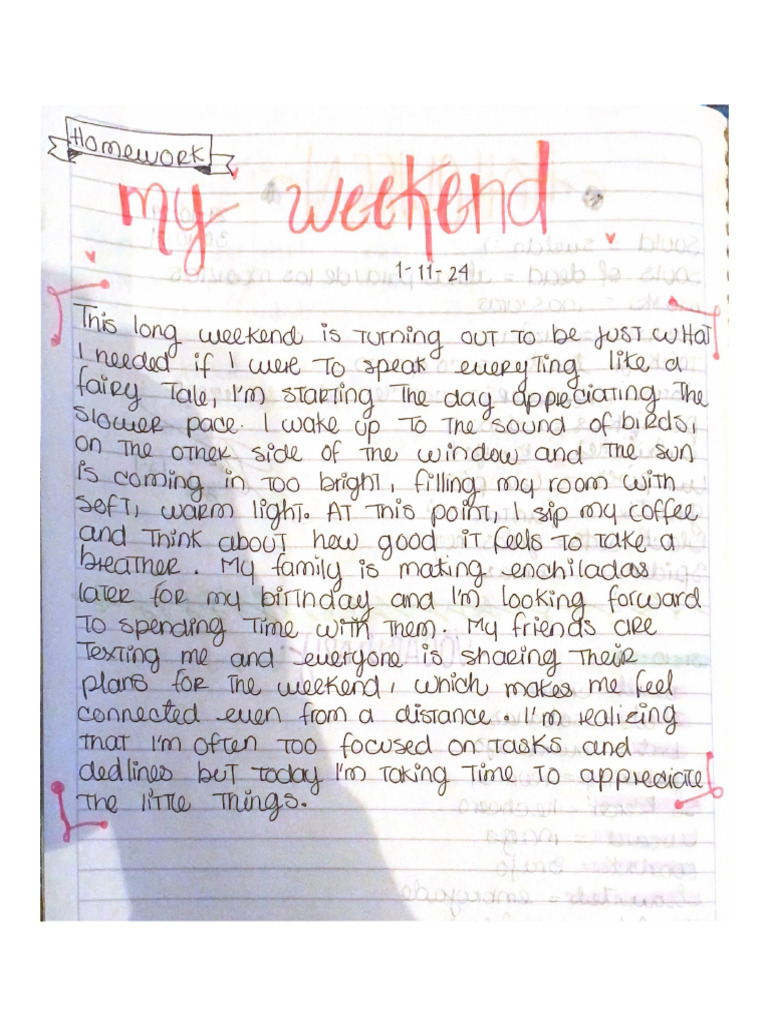 HOMEWORK
my weekend
1-11-24
This long weekend is turning out to be just what
I needed if I were to speak everyting like a
fairy tale, I'm starting the day appreciating the
slower pace. I wake up to the sound of birds,
on the other side of the window and the sun
is coming in too bright, filling my room with
soft, warm light. At this point, I sip my coffee
and think about how good it feels to take a
breather. My family is making enchiladas
later for my birthday and I'm looking forward
to spending time with them. My friends are
texting me and everyone is sharing their
plans for the weekend, which makes me feel
connected even from a distance. I'm realizing
that I'm often too focused on tasks and
dedlines but today I'm taking time to appreciate
the little things.